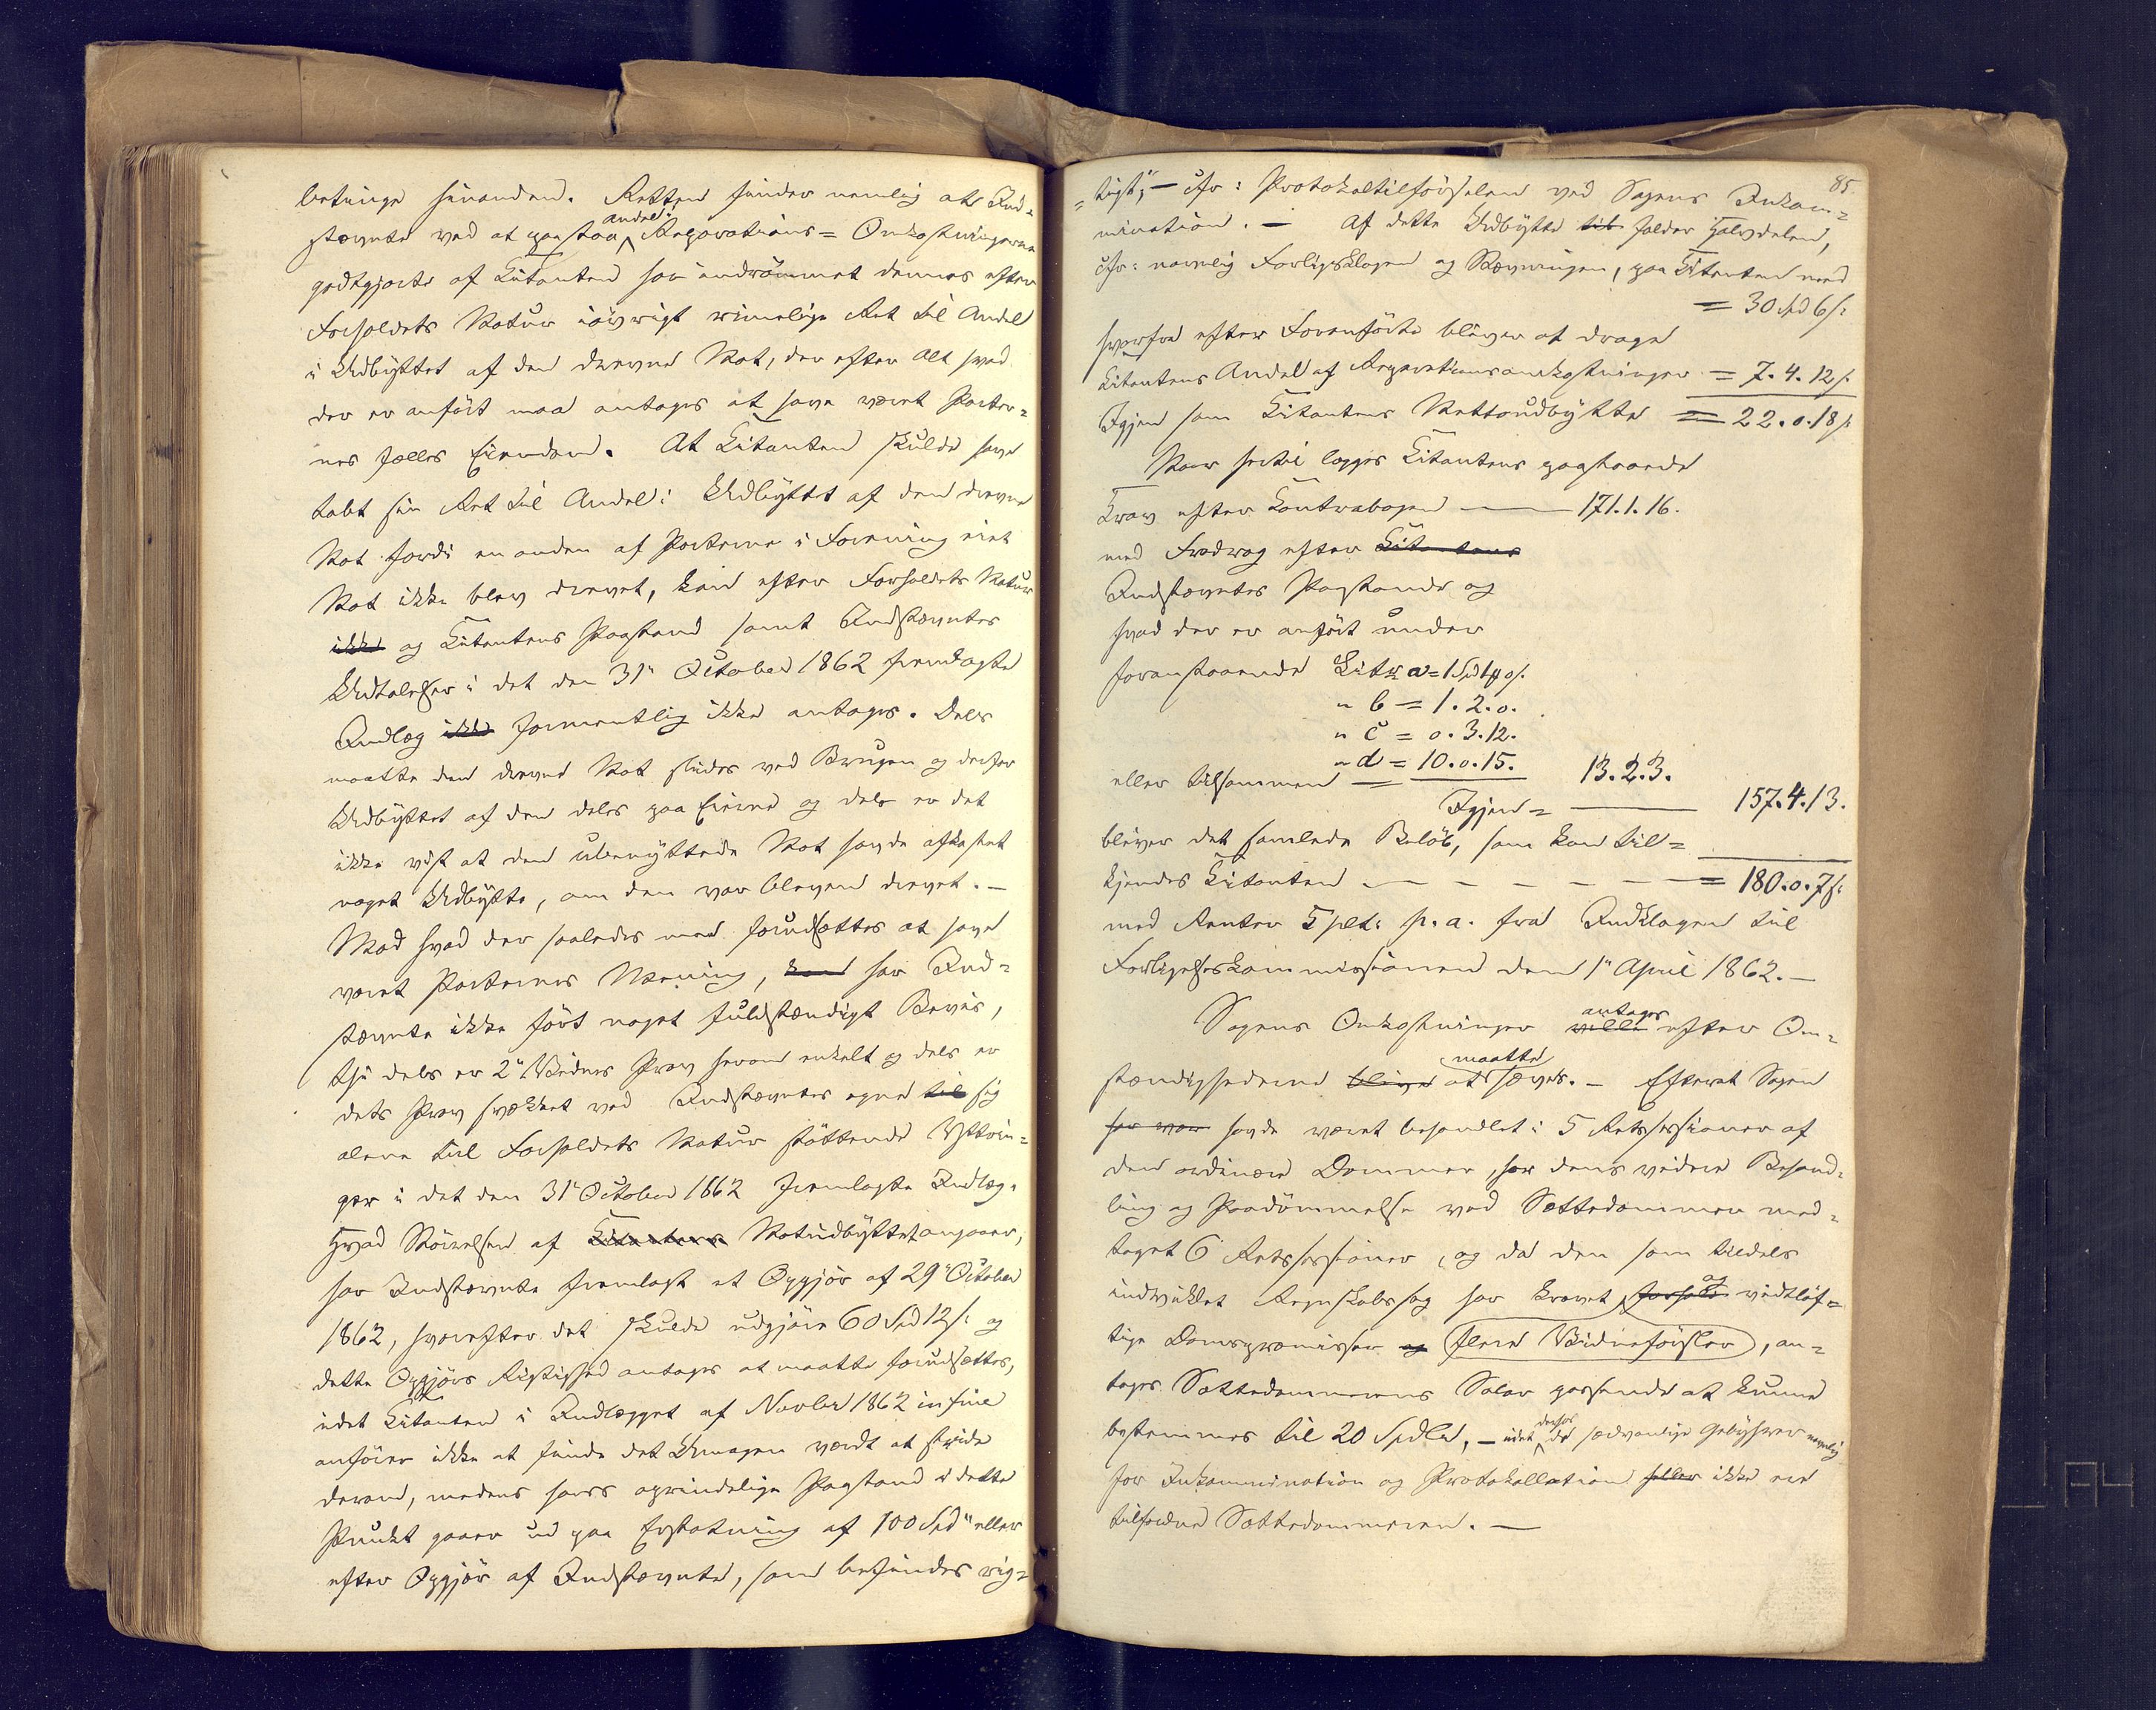 betinge hinanden. Retten finder nemlig at Ind-
stevnte ved at paastaa andel i Reparations= Omkostningerne
godtgjorte af Citanten har indrömmet dennes efter
Forholdets Natur iövrigt rimelige Ret til Andel
i Udbyttet af den drevne Not, der efter Alt hvad
der er anfört maa antages at have været Parter=
nes fælles Eiendom. At Citanten skulde have
tabt sin Ret til Andel i Udbyttet af den drevne
Not fordi en anden af Parterne i Forening eiet
Not ikke blev drevet, kan efter Forholdets Natur
ikke og Citantens Paastand samt Indstevntes
Udtalelser i det den 31te October 1862 fremlagte
Indlæg ikke formentlig ikke antages. Dels
maatte den drevne Not slides ved Brugen og derfor
Udbyttet af den deles paa Eierne og dels er det
ikke vist at den ubenyttede Not havde afkastet
noget Udbytte, om den var bleven drevet. —
Mod hvad der saaledes maa forudsættes at have
været Parternes Mening, kan har Ind=
stevnte ikke fört noget fuldstændigt Bevis,
thi dels er 2det Vidnes Prov herom enkelt og dels er
dets Prov svækket ved Indstevntes egne til sig
alene til Forholdets Natur stöttende Yttrin=
ger i det den 31te October 1862 fremlagte Indlæg.
Hvad Störrelsen af Citantens Notudbyttet angaaer,
har Indstevnte fremlagt et Opgjör af 29de October
1862, hvorefter det skulde udgjöre 60 Spd 12 s: og
dette Opgjörs Rigtighed antages at maatte forudsættes,
idet Citanten i Indlægget af Novbr 1862 in fine
anförer ikke at finde det Umagen værdt at stride
derom, medens hans oprindelige Paastand i dette
Punkt gaaer ud paa Erstatning af 100 Spd "eller
efter Opgjör af Indstevnte, som befindes rig=
85.
=tigt", — cfr: Protokoltilförselen ved Sagens Inkam=
mination. — Af dette Udbytte til falder Halvdelen,
cfr: navnlig Forligsklagen og Stevningen, paa Citanten med
= 30 Spd 6 s:
hvorfra efter Foranförte bliver at drage
Citantens Andel af Reparationsomkostninger = 7. 4. 12 s.
Igjen som Citantens Nettoudbytte = 22. 0. 18 s.
Naar hertil lægges Citantens paastaaede
Krav efter Contrabogen — 171. 1. 16.
med Fradrag efter Citantens
Indstevntes Paastande og
hvad der er anfört under
foranstaaende Litr a = 1 Spd 1 # 0 s.
" b = 1. 2. 0.
" c = 0. 3. 12.
" d = 10. 0. 15.
eller tilsammen = 13. 2. 3.
Igjen = — 157. 4. 13.
bliver det samlede Belöb, som kan til=
kjendes Citanten — — — — — = 180. 0. 7 s:
med Renter 5 pCt: p. a. fra Indklagen til
Forligelseskommissionen den 1te April 1862. —
Sagens Omkostninger ville antages efter Om=
stændighederne blive maatte at hæves. — Efterat Sagen
har vær havde været behandlet i 5 Retssessioner af
den ordinære Dommer, har dens videre Behand=
ling og Paadömmelse ved Sættedommer med=
taget 6 Retssessioner, og da den som tildels
indviklet Regnskabssag har krævet forhold og vidtlöf=
tige Domspræmisser og flere Vidneförsler, an=
tages Sættedommerens Salær passende at kunne
bestemmes til 20 Spdlr, — idet derhos de sædvanlige Gebyhrer navnlig
for Inkammination og Protokollation heller ikke ere
tilfaldne Sættedommeren. —